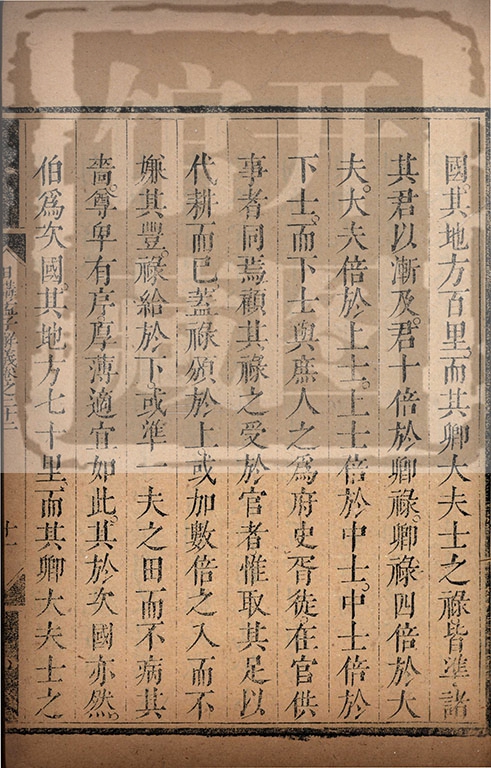 國其地方百里而其卿大夫士之祿皆準諸
其君以漸及君十倍於卿祿卿祿四倍於大
夫大夫倍於上士上士倍於中士中士倍於
下士而下士與庶人之爲府史胥徒在官供
事者同焉顧其祿之受於官者惟取其足以
代耕而已蓋祿頒於上或加數倍之入而不
嫌其豐祿給於下或準一夫之田而不病其
嗇尊卑有序厚薄適宜如此其於次國亦然
伯爲次國其地方七十里而其卿大夫士之
日講
解義卷之二十二
十一